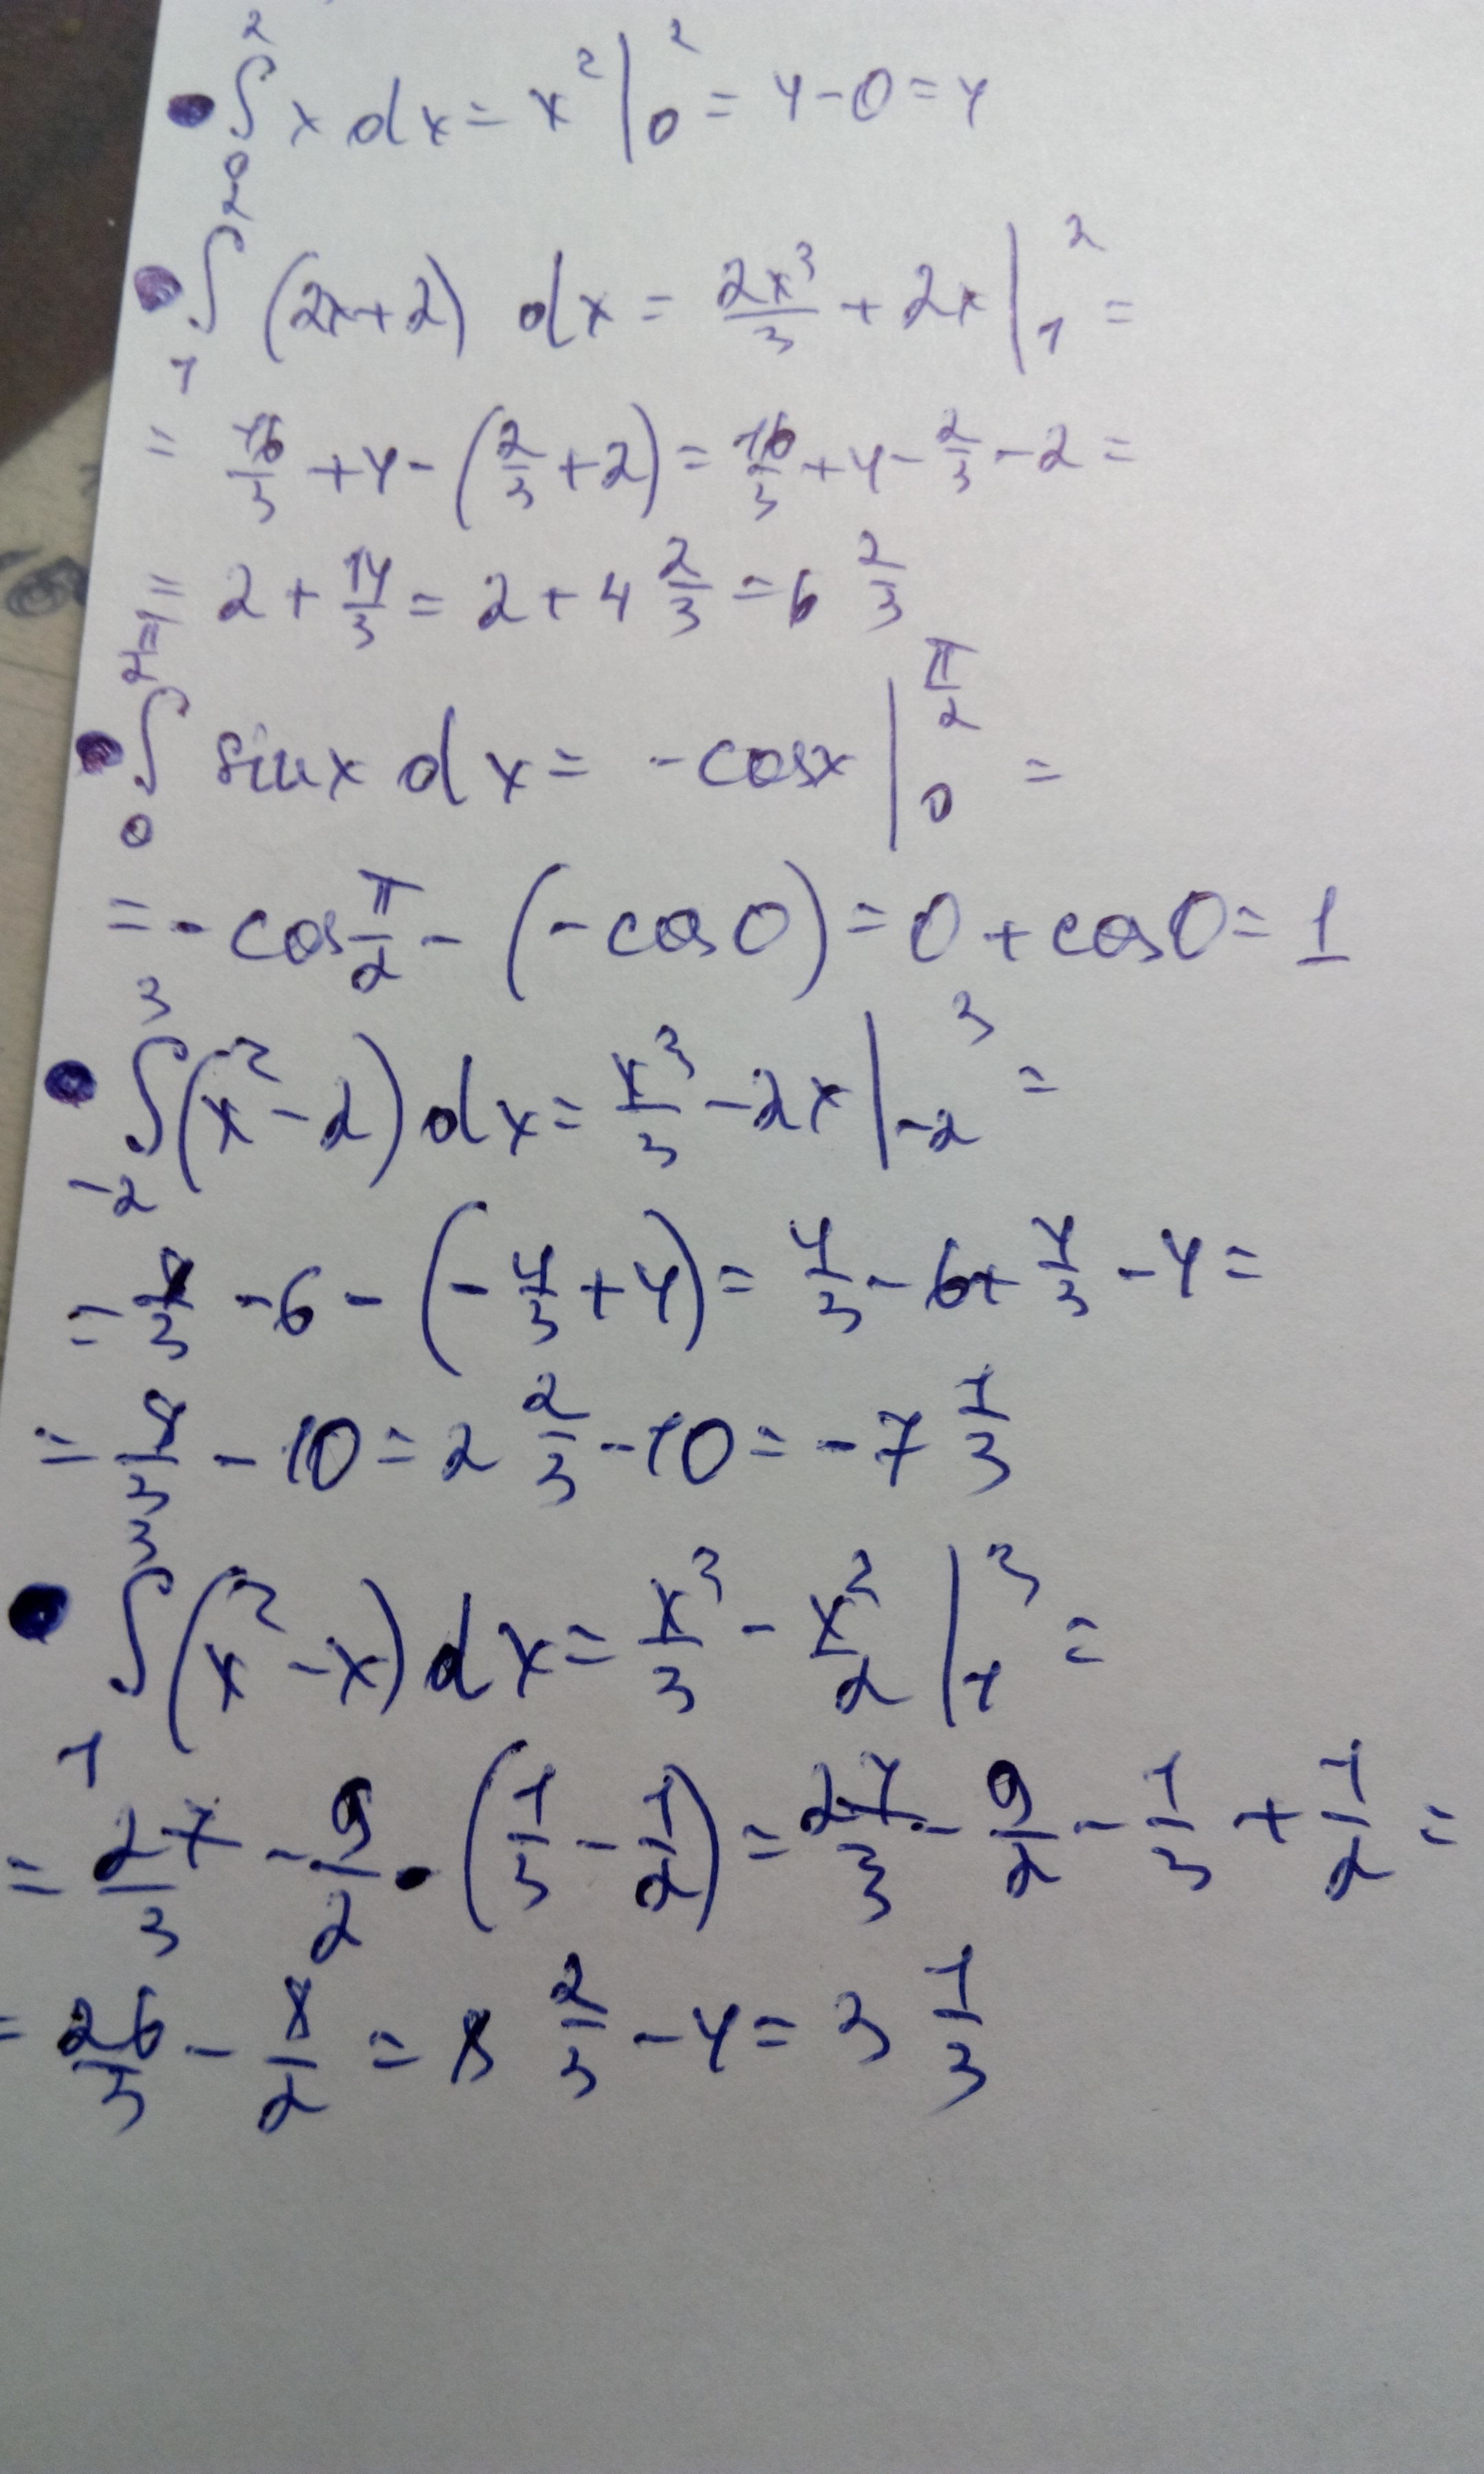 ∫₀² x dx = x² |₀² = 4 - 0 = 4
∫₁² (2x+2) dx = 2x³/3 + 2x |₁² =
= 16/3 + 4 - (2/3 + 2) = 16/3 + 4 - 2/3 - 2 =
= 2 + 14/3 = 2 + 4 2/3 = 6 2/3
∫₀^(π/2) sinx dx = -cosx |₀^(π/2) =
= -cos π/2 - (-cos 0) = 0 + cos 0 = 1
∫₋₂³ (x² - 2) dx = x³/3 - 2x |₋₂³ =
= 8/3 - 6 - (-4/3 + 4) = 4/3 - 6 + 4/3 - 4 =
= 8/3 - 10 = 2 2/3 - 10 = -7 1/3
∫₁³ (x² - x) dx = x³/3 - x²/2 |₁³ =
= 27/3 - 9/2 - (1/3 - 1/2) = 27/3 - 9/2 - 1/3 + 1/2 =
= 26/3 - 8/2 = 8 2/3 - 4 = 3 1/3